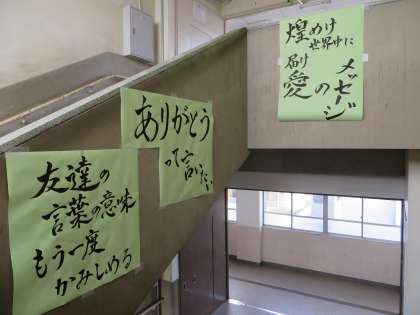 友達の
言葉の意味
もう一度
かみしめる
ありがとう
って言いたい
煌めけ
世界中に
愛の
メッセージ